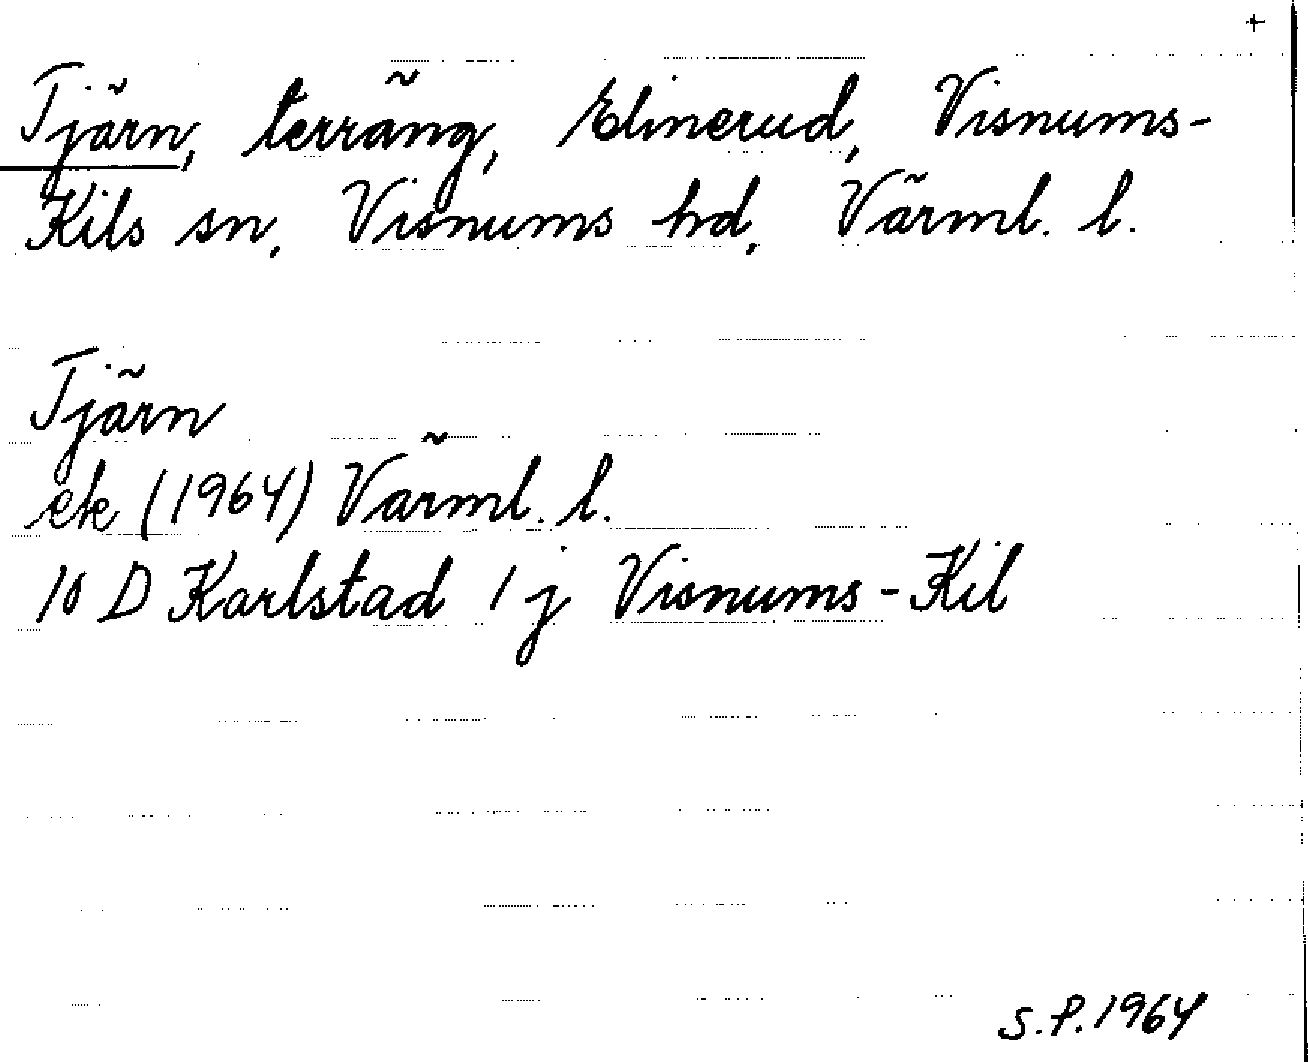 +
Tjärn, terräng, Elinerud, Visnums-
Kils sn, Visnums hd, Värml. l.
Tjärn
ek (1964) Värml. l.
10 D Karlstad 1 j Visnums-Kil
S.P. 1964